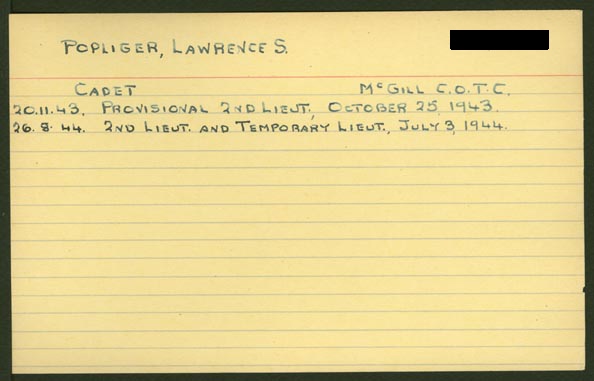 POPLIGER, LAWRENCE S.
CADET McGILL C.O.T.C.
20.11.43. PROVISIONAL 2ND LIEUT., OCTOBER 25, 1943.
26.8.44. 2ND LIEUT. AND TEMPORARY LIEUT., JULY 3, 1944.